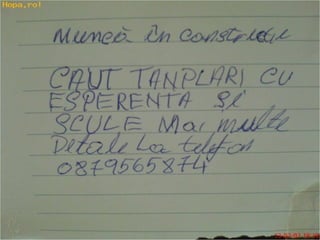 Hopa.ro!
Muncă în construcţii
CAUT TANPLARI CU
ESPERENTA şi
SCULE Mai multe
Detale La telefon
0879565874